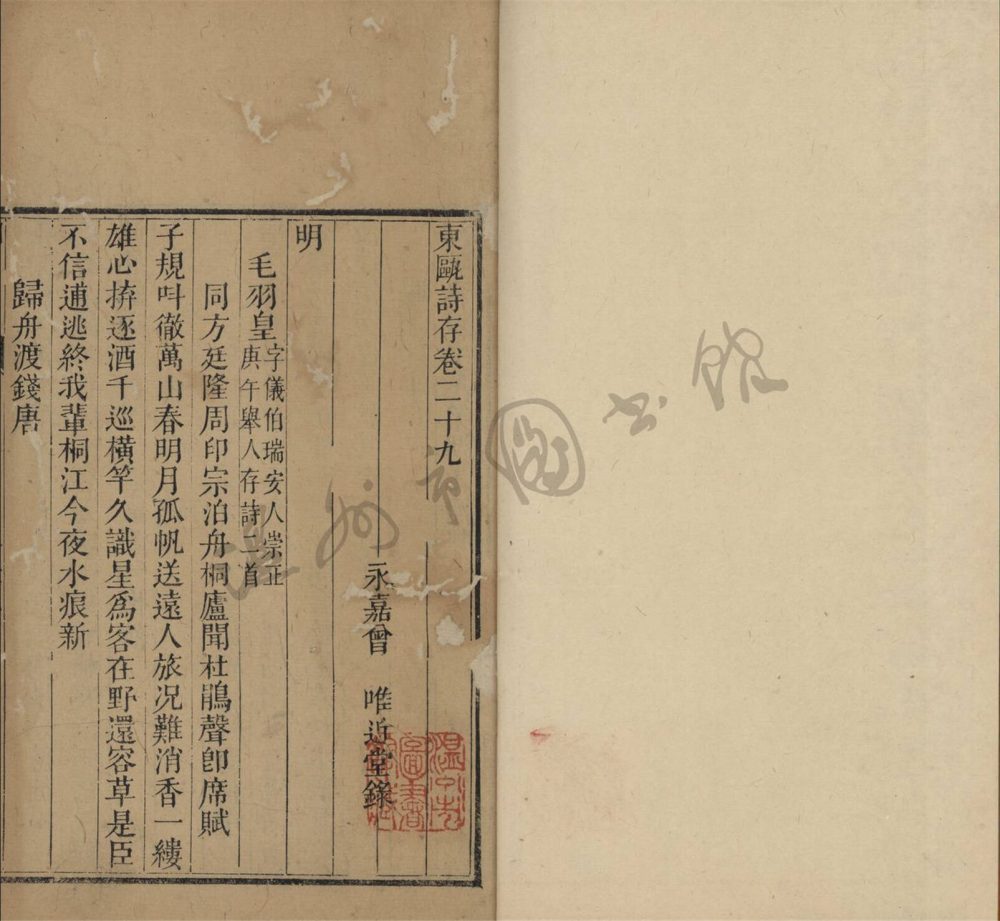 東甌詩存卷二十九
永嘉曾 唯近堂錄
明
毛羽皇字儀伯瑞安人崇正
庚午舉人存詩二首
同方廷隆周印宗泊舟桐廬聞杜鵑聲卽席賦
子規呌徹萬山春明月孤帆送遠人旅况難消香一縷
雄心拚逐酒千巡橫竿久識星爲客在野還容草是臣
不信逋逃終我輩桐江今夜水痕新
歸舟渡錢唐
溫州市圖書館